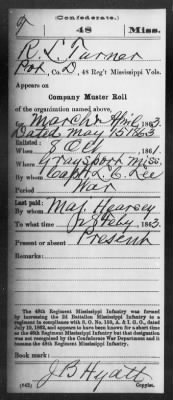 (Confederate.)
T 48 Miss.
R. L. Turner
Pvt, Co. D, 48 Reg't Mississippi Vols.
Appears on
Company Muster Roll
of the organization named above,
for March & Apl, 1863.
Dated May 15 1863
Enlisted:
When 8 Oct, 1861.
Where Graysport Miss.
By whom Capt L. C. Lee
Period War
Last paid:
By whom Maj Hearsey
To what time 28 Feby, 1863.
Present or absent Present
Remarks:
The 48th Regiment Mississippi Infantry was formed
by increasing the 2d Battalion Mississippi Infantry to a
regiment in compliance with S. O. No.
dated
and appears to have been known for a short time
as the 49th Regiment Mississippi Infantry but that designation
was not recognized by the Confederate War Department and it
became the 48th Regiment Mississippi Infantry.
Book mark:
J B Hyatt
(642) Copyist.